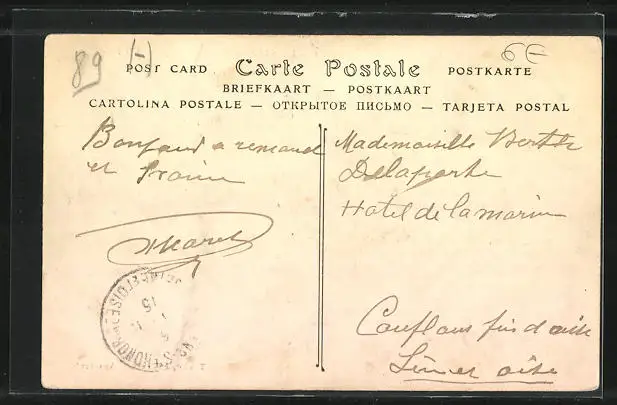 89 (-)
6E
POST CARD Carte Postale POSTKARTE
BRIEFKAART — POSTKAART
CARTOLINA POSTALE — ОТКРЫТОЕ ПИСЬМО — TARJETA POSTAL
a
et
Mademoiselle Berthe
Delaporte
Hotel de la marine
Conflans fin d'oise
Seine et oise
SEINE ET OISE
15